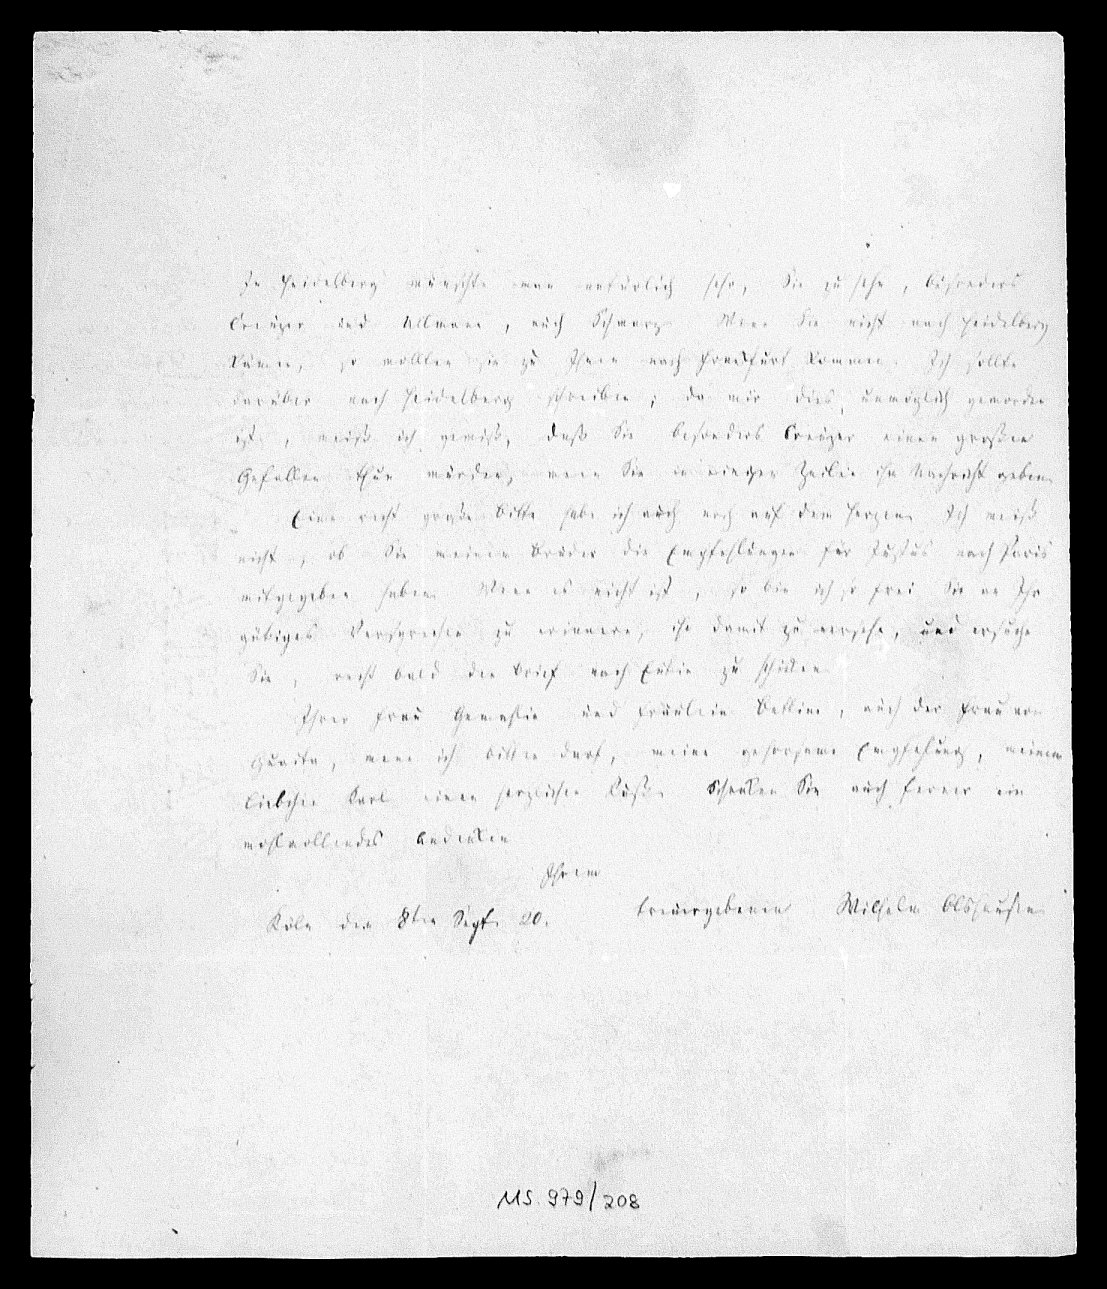 In Heidelberg wünschte man natürlich sehr, Sie zu sehn, besonders
Creuzer und Ullmann, auch Schwarz. Wenn Sie nicht nach Heidelberg
kämen, so wollten sie zu Ihnen nach Frankfurt kommen. Ich sollte
darüber nach Heidelberg schreiben; da mir dies unmöglich geworden
ist, weiß ich gewiß, daß Sie besonders Creuzer einen großen
Gefallen thun würden, wenn Sie in einigen Zeilen ihm Nachricht geben.
Eine recht große Bitte habe ich auch noch auf dem Herzen. Ich weiß
nicht, ob Sie meinem Bruder die Empfehlungen für Justus nach Paris
mitgegeben haben. Wenn es nicht ist, so bin ich so frei Sie an Ihr
gütiges Versprechen zu erinnern, ihn damit zu versehn, und ersuche
Sie, recht bald den Brief nach Eutin zu schicken.
Ihrer Frau Gemahlin und Fräulein Bettine, auch der Frau von
Guaita, wenn ich bitten darf, meine gehorsame Empfehlung, meinem
Liebchen Karl einen herzlichen Kuß. Schenken Sie auch ferner ein
wohlwollendes Andenken
Ihrem
treuergebenen Wilhelm Olshausen
Köln den 8ten Sept. 20.
MS. 979/208